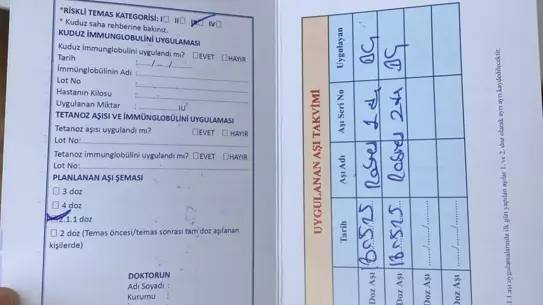 *RİSKLİ TEMAS KATEGORİSİ: I☐ II☐ III☐ IV☐
* Kuduz saha rehberine bakınız.
KUDUZ İMMUNGLOBULİNİ UYGULAMASI
Kuduz immunglobulini uygulandı mı? ☐EVET ☐HAYIR
Tarih :..../..../....
İmmünglobülinin Adı :
Lot No :
Hastanın Kilosu :
Uygulanan Miktar :..............IU
TETANOZ AŞISI VE İMMÜNGLOBÜLİNİ UYGULAMASI
Tetanoz aşısı uygulandı mı? ☐EVET ☐HAYIR
Lot No:
Tetanoz immunglobulini uygulandı mı? ☐EVET ☐HAYIR
Lot No:
PLANLANAN AŞI ŞEMASI
☐ 3 doz
☐ 4 doz
2.1.1 doz
☐ 2 doz (Temas öncesi/temas sonrası tam doz aşılanan
kişilerde)
DOKTORUN
Adı Soyadı :
Kurumu :
UYGULANAN AŞI TAKVİMİ
Tarih Aşı Adı Aşı Seri No Uygulayan
Doz Aşı
Doz Aşı
Doz Aşı ..../..../........
Doz Aşı ..../..../........
aşı uygulamalarında ilk gün yapılan aşılar 1. ve 2. doz olarak ayrı ayrı kaydedilecektir.